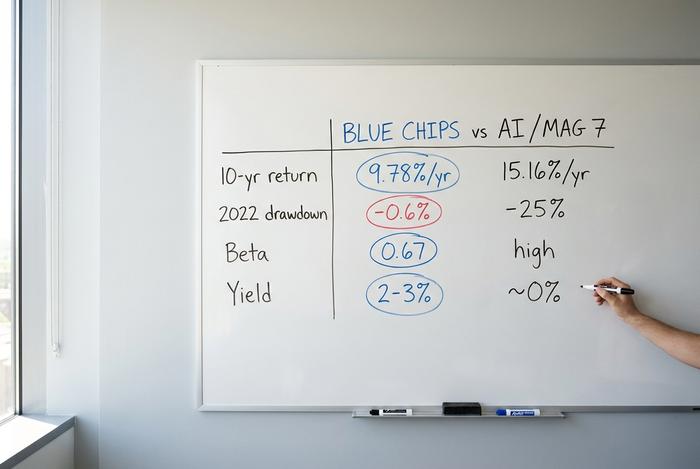 BLUE CHIPS vs AI/MAG 7
10-yr return 9.78%/yr 15.16%/yr
2022 drawdown -0.6% -25%
Beta 0.67 high
Yield 2-3% ~0%